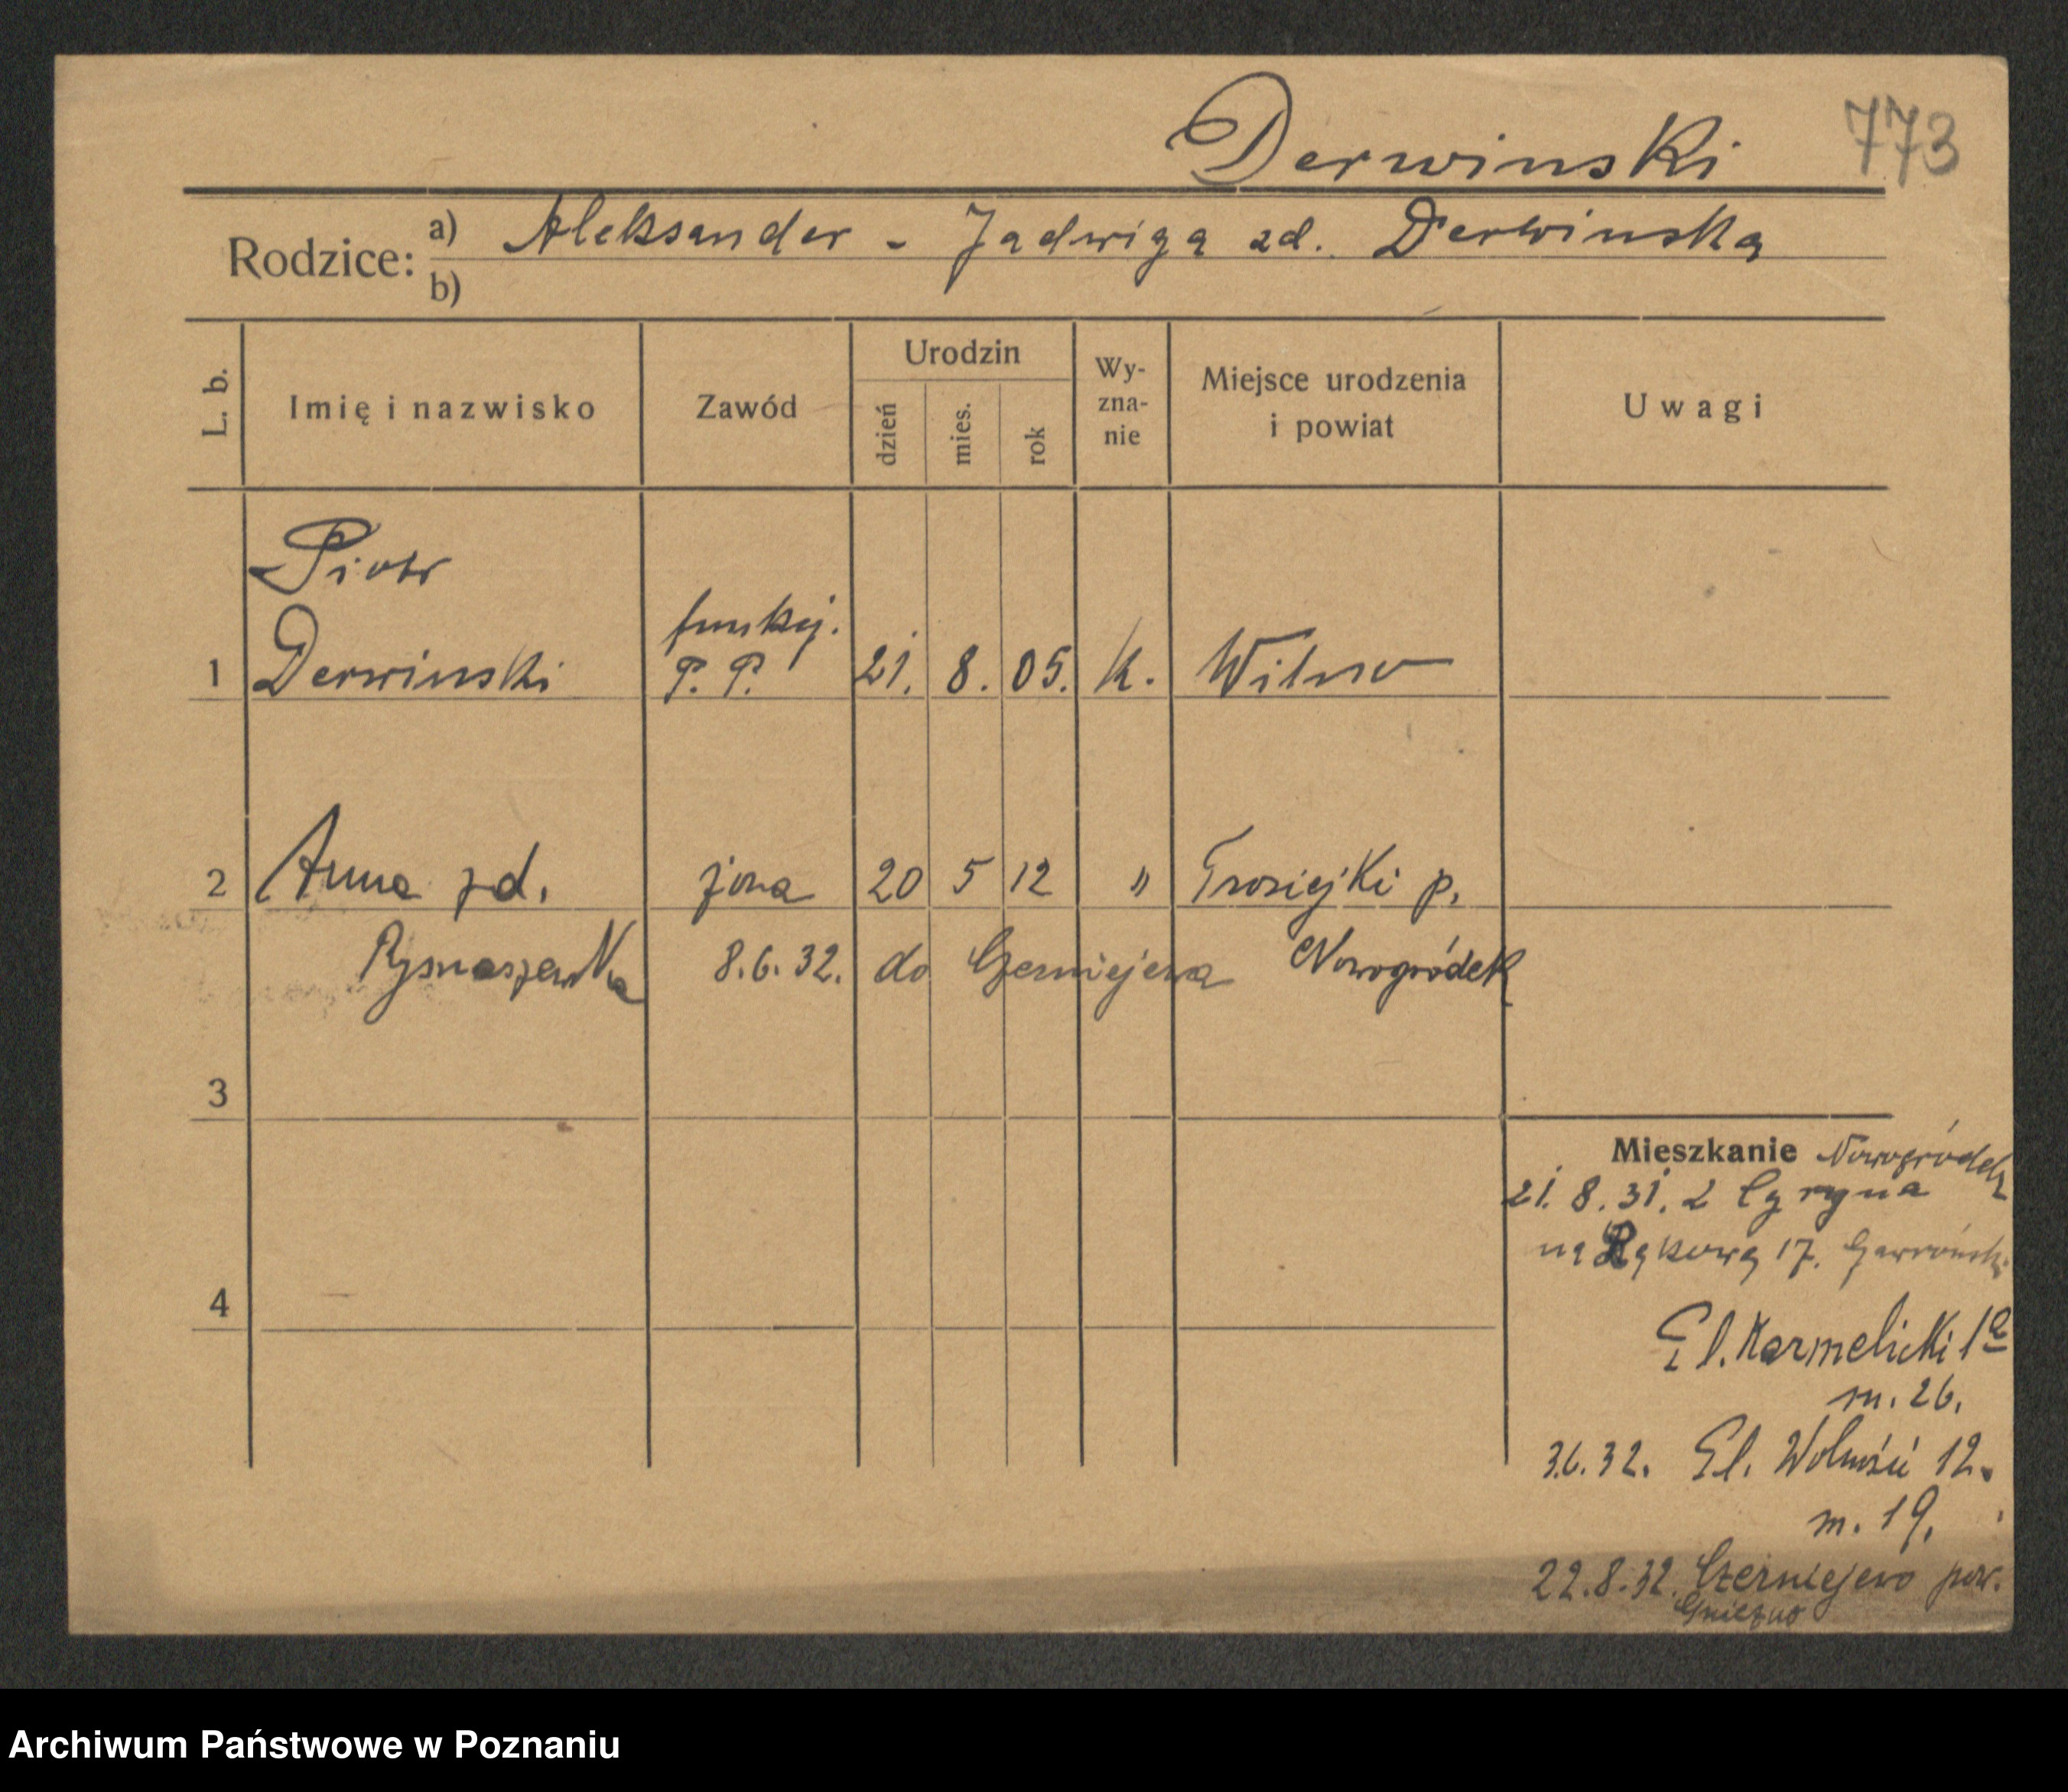 Derwinski 773
Rodzice: a) Aleksander - Jadwiga zd. Derwinska
b)
L. b. Imię i nazwisko Zawód Urodzin dzień mies. rok Wy-zna-nie Miejsce urodzenia i powiat Uwagi
Piotr
1 Derwinski funkcj. P. P. 21. 8. 05. k. Wilno
2 Anna zd. żona 20 5 12 " p.
8.6.32. do Czerniejewa Nowogródek
3
Mieszkanie Nowogródek
21. 8. 31. z
na Rąkową 17.
4
Pl. Karmelicki 1a
m. 26.
3.6.32. Pl. Wolności 12.
m. 19.
22.8.32. Czerniejewo pow.
Gniezno
Archiwum Państwowe w Poznaniu